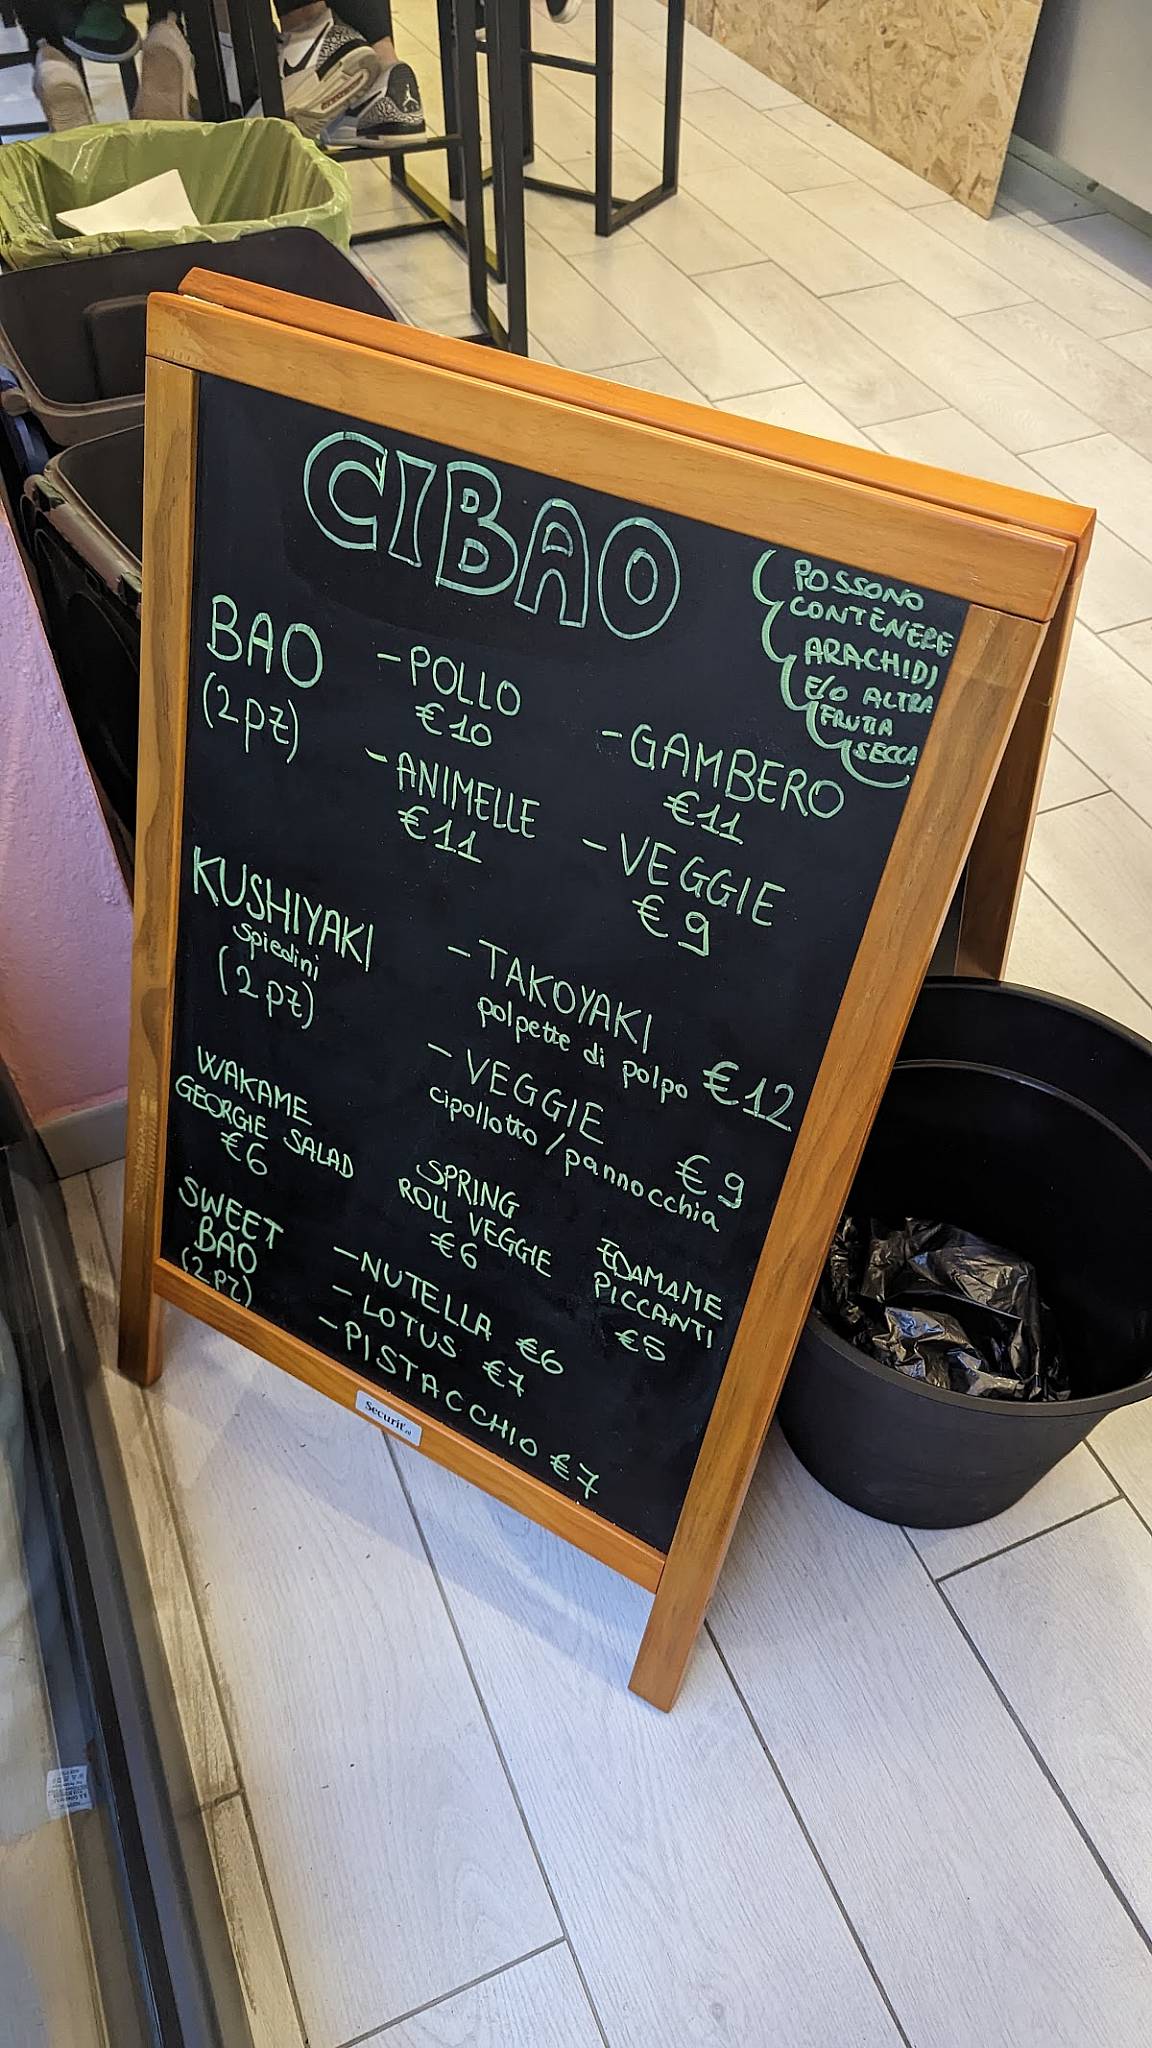 CIBAO
POSSONO
CONTENERE
ARACHIDI
E/O ALTRA
FRUTTA
SECCA
BAO
(2pz)
-POLLO
€10
-GAMBERO
€11
-ANIMELLE
€11
-VEGGIE
€9
KUSHIYAKI
spiedini
(2pz)
-TAKOYAKI
polpette di polpo €12
-VEGGIE
cipollotto/pannocchia
€9
WAKAME
GEORGIE SALAD
€6
SPRING
ROLL VEGGIE
€6
EDAMAME
PICCANTI
€5
SWEET
BAO
(2pz)
-NUTELLA €6
-LOTUS €7
-PISTACCHIO €7
Securit